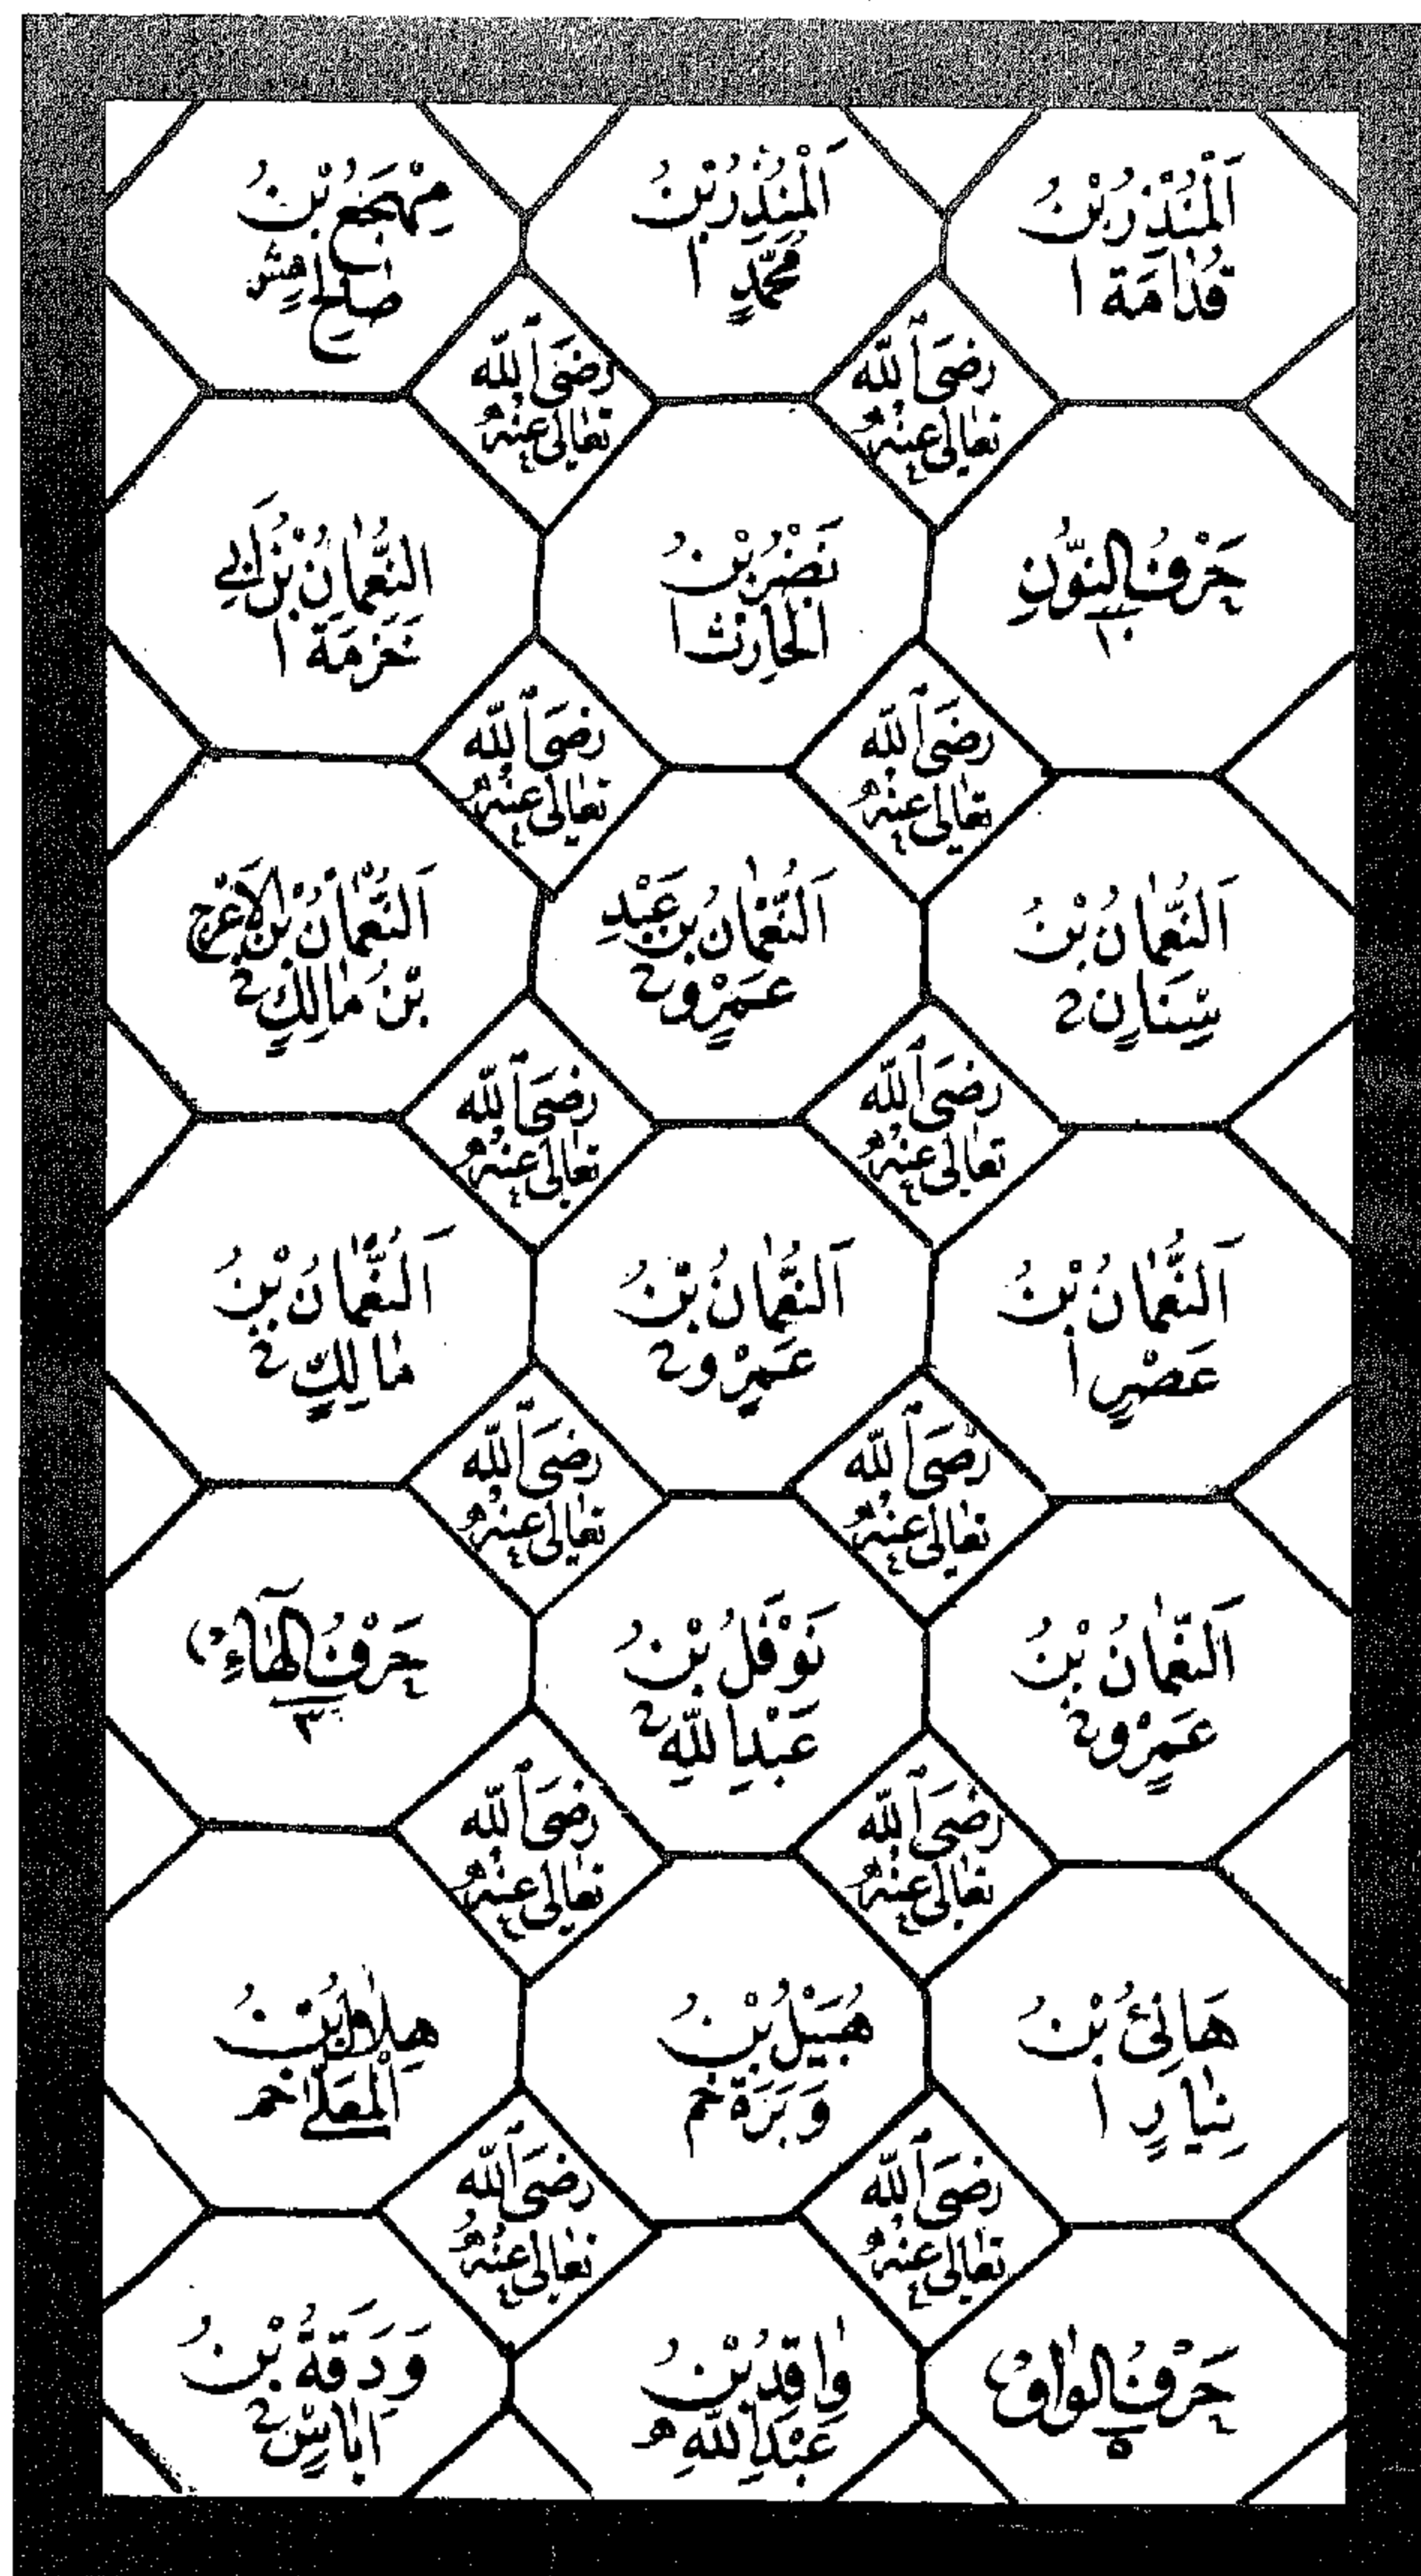 اَلْمُنْذِرُبْنُ
قُدَامَةَ ا
اَلْمُنْذِرُبْنُ
مُحَمَّدٍ ا
مِهْجَعُ بْنُ
صَالِحٍ
رَضِىَ اللّٰه
تَعَالٰى عَنْهُ
رَضِىَ اللّٰه
تَعَالٰى عَنْهُ
حَرْفُ النُّوْنِ
١٠
نَضْرُ بْنُ
الْحَارِثِ ا
النُّعْمَانُ بْنُ اَبِي
خَزْمَةَ ا
رَضِىَ اللّٰه
تَعَالٰى عَنْهُ
رَضِىَ اللّٰه
تَعَالٰى عَنْهُ
اَلنُّعْمَانُ بْنُ
سِنَانٍ 2
اَلنُّعْمَانُ بْنُ عَبْدِ
عَمْرٍو 2
اَلنُّعْمَانُ بْنُ الْاَعْرَجِ
بْنُ مَالِكٍ 2
رَضِىَ اللّٰه
تَعَالٰى عَنْهُ
رَضِىَ اللّٰه
تَعَالٰى عَنْهُ
اَلنُّعْمَانُ بْنُ
عَصْرٍ ا
اَلنُّعْمَانُ بْنُ
عَمْرٍو 2
اَلنُّعْمَانُ بْنُ
مَالِكٍ
رَضِىَ اللّٰه
تَعَالٰى عَنْهُ
رَضِىَ اللّٰه
تَعَالٰى عَنْهُ
اَلنُّعْمَانُ بْنُ
عَمْرٍو
نَوْفَلُ بْنُ
عَبْدِ اللّٰهِ 2
حَرْفُ الْهَآءِ
٣
رَضِىَ اللّٰه
تَعَالٰى عَنْهُ
رَضِىَ اللّٰه
تَعَالٰى عَنْهُ
هَانِئُ بْنُ
نِيَارٍ ا
هُبَيْلُ بْنُ
وَبَرَةَ خم
هِلَالُ بْنُ
الْمُعَلّٰے خم
رَضِىَ اللّٰه
تَعَالٰى عَنْهُ
رَضِىَ اللّٰه
تَعَالٰى عَنْهُ
حَرْفُ الْوَاوِ
٥
وَاقِدُ بْنُ
عَبْدِ اللّٰهِ ھ
وَدَقَةُ بْنُ
اَيَاسٍ 2